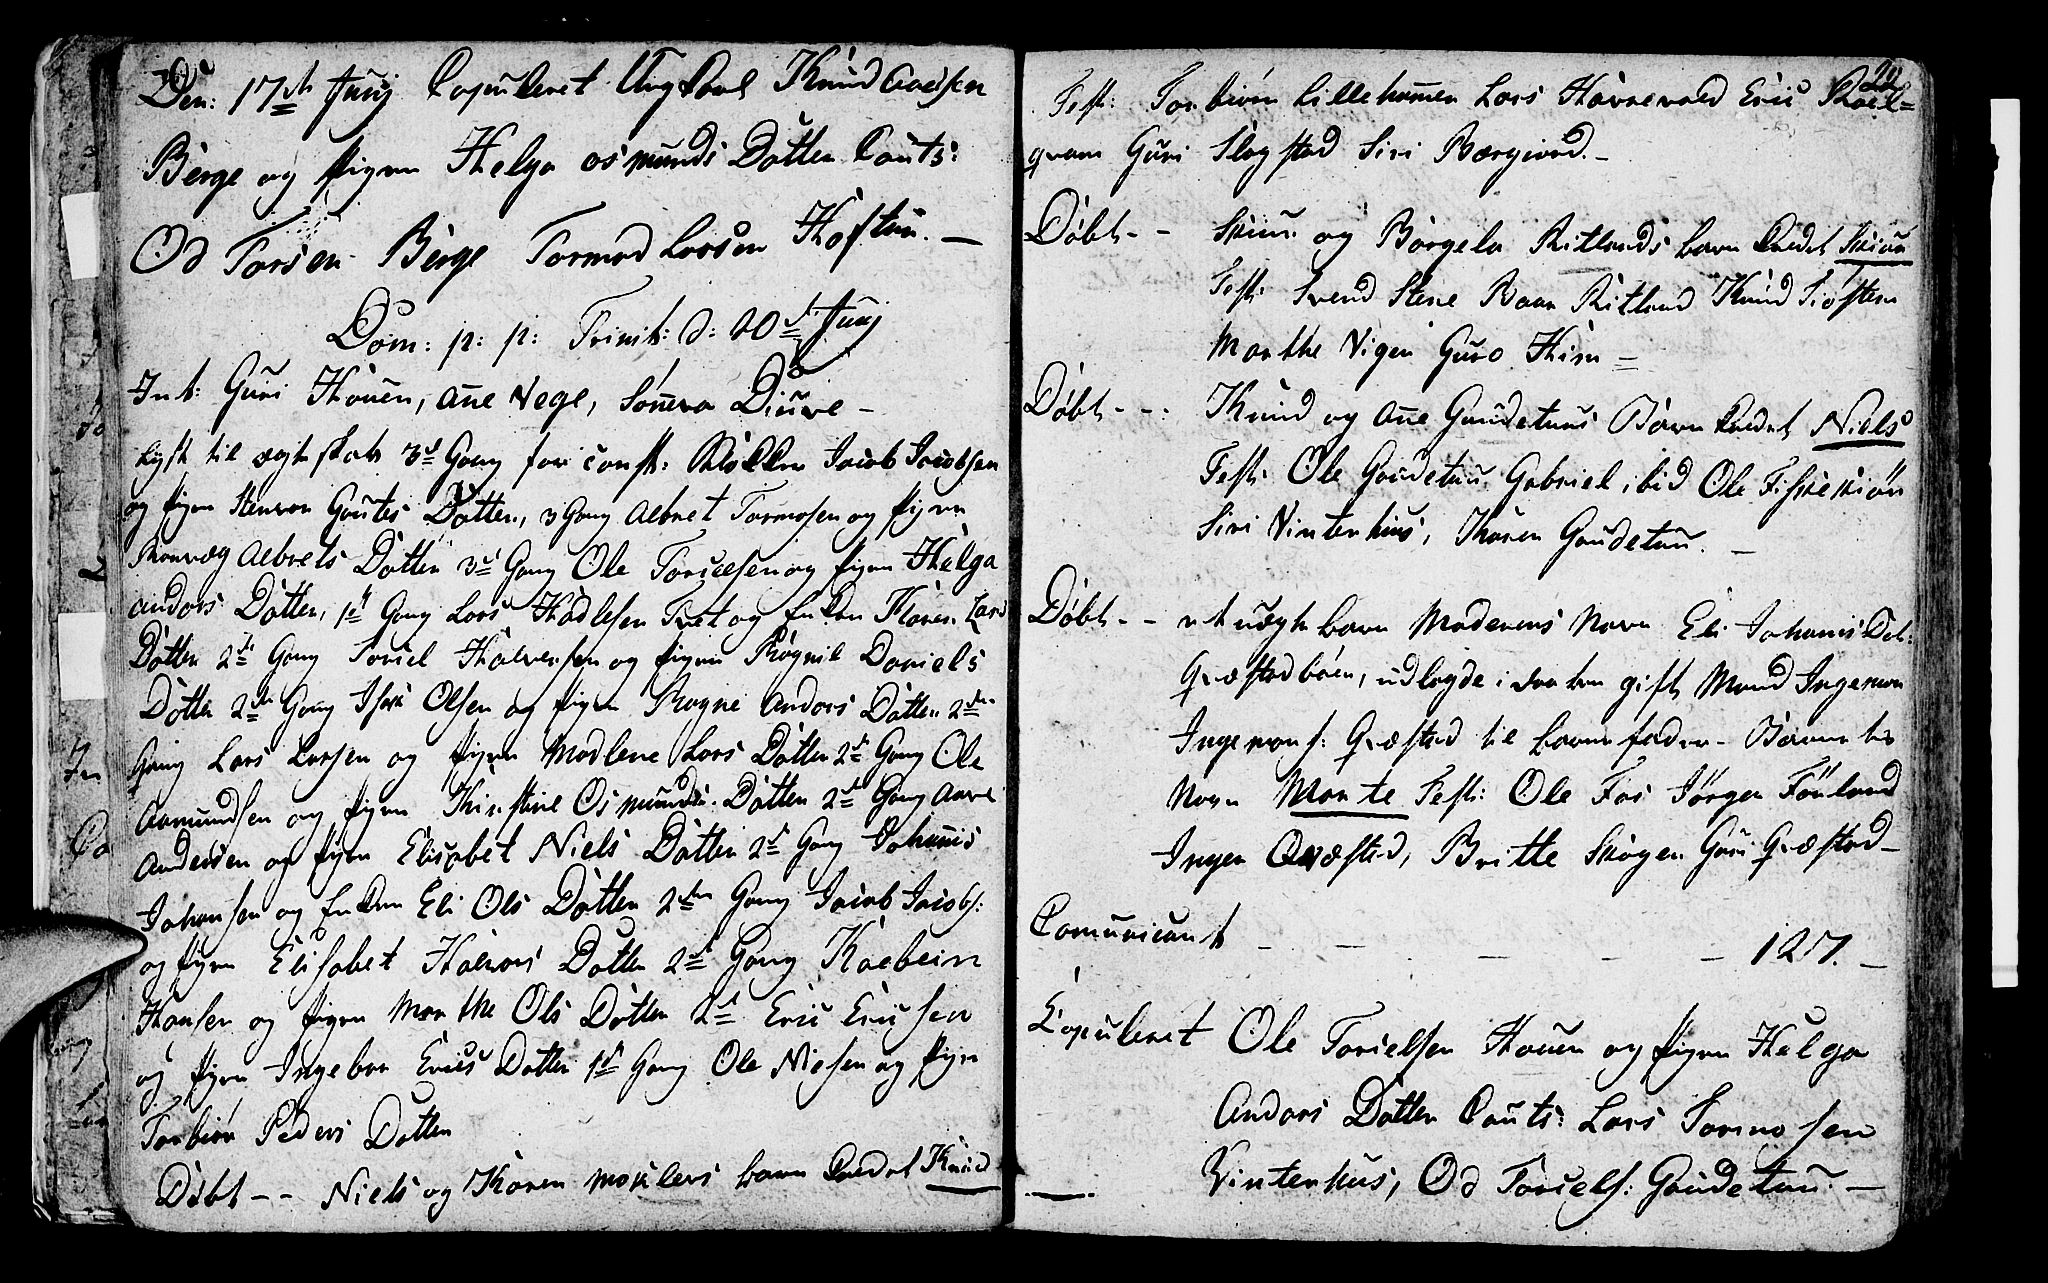 Den: 17de Junj Copuleret Ung Karl Knud
Berge og pigen Helga osmunds Datter Cauts:
Od Torsen Berge Tormod Larsen Høftun. —
Dom: p: p: Trinit: d: 20de Junj
Int: Guri Houen, Ane Vege, Sønneva Diuve —
Lyst til ægteskab 3de Gang for const: Klokker Jacob Jacobsen
og pigen Stenvor Goutes Datter, 3 Gang Albret Tormosen og pigen
Albrets Datter 3de Gang Ole Torielsen og pigen Helga
andors Datter, 1te Gang Lars Hadlesen Tvet og Enken Karen Lars
Datter 2de Gang Toriel Halvorsen og pigen Rognil Daniels
Datter 2den Gang Isak Olsen og pigen Ragne Andors Datter 2den
Gang Lars Larsen og pigen Madlene Lars Datter 2de Gang Ole
Aamundsen og pigen Kirstine Osmunds Datter 2de Gang
Andersen og pigen Elisabet Niels Datter 2de Gang Johanis
Johansen og Enken Eli Ols Datter 2den Gang Jacob Jacobs:
og pigen Elisabet Halvors Datter 2de Gang Kolbein
Hansen og pigen Marthe Ols Datter 2de Eric Ericsen
og pigen Ingebor Erics Datter 1te Gang Ole Nielsen og pigen
Torbiør Peders Datter
Døbt — — Niels og Karen barn kaldet Knud
Test: Torbiørn Lillehammer Lars Havrevold Eric
Guri Slogstad Siri
Døbt — — og Børgela Ritlands barn kaldet
Test: Svend Stene Baar Ritland Knud
Marthe Vigen Guro Hiim —
Døbt — — : Knud og Ane Gaudetuns Barn kaldet Niels
Test: Ole Gaudetun Gabriel ibid Ole
Siri Vinterhus, Karen Gaudetun. —
Døbt — — et uægte barn Moderens Navn Eli Johanis Dat:
Græstadbøen, udlagde i gift Mand Ingemon
Ingemons: Græstad til barnefader — Barnets
Navn Marte Test: Ole Fos Jørgen Fönland
Inger Græstad, Britte Skogen Guri Græstad —
Comunicant — — — — 127. —
Copuleret Ole Torielsen Houen og pigen Helga
Andors Datter Cauts: Lars Tormosen
Vinterhus, Od Toriels: Gaudetun. —